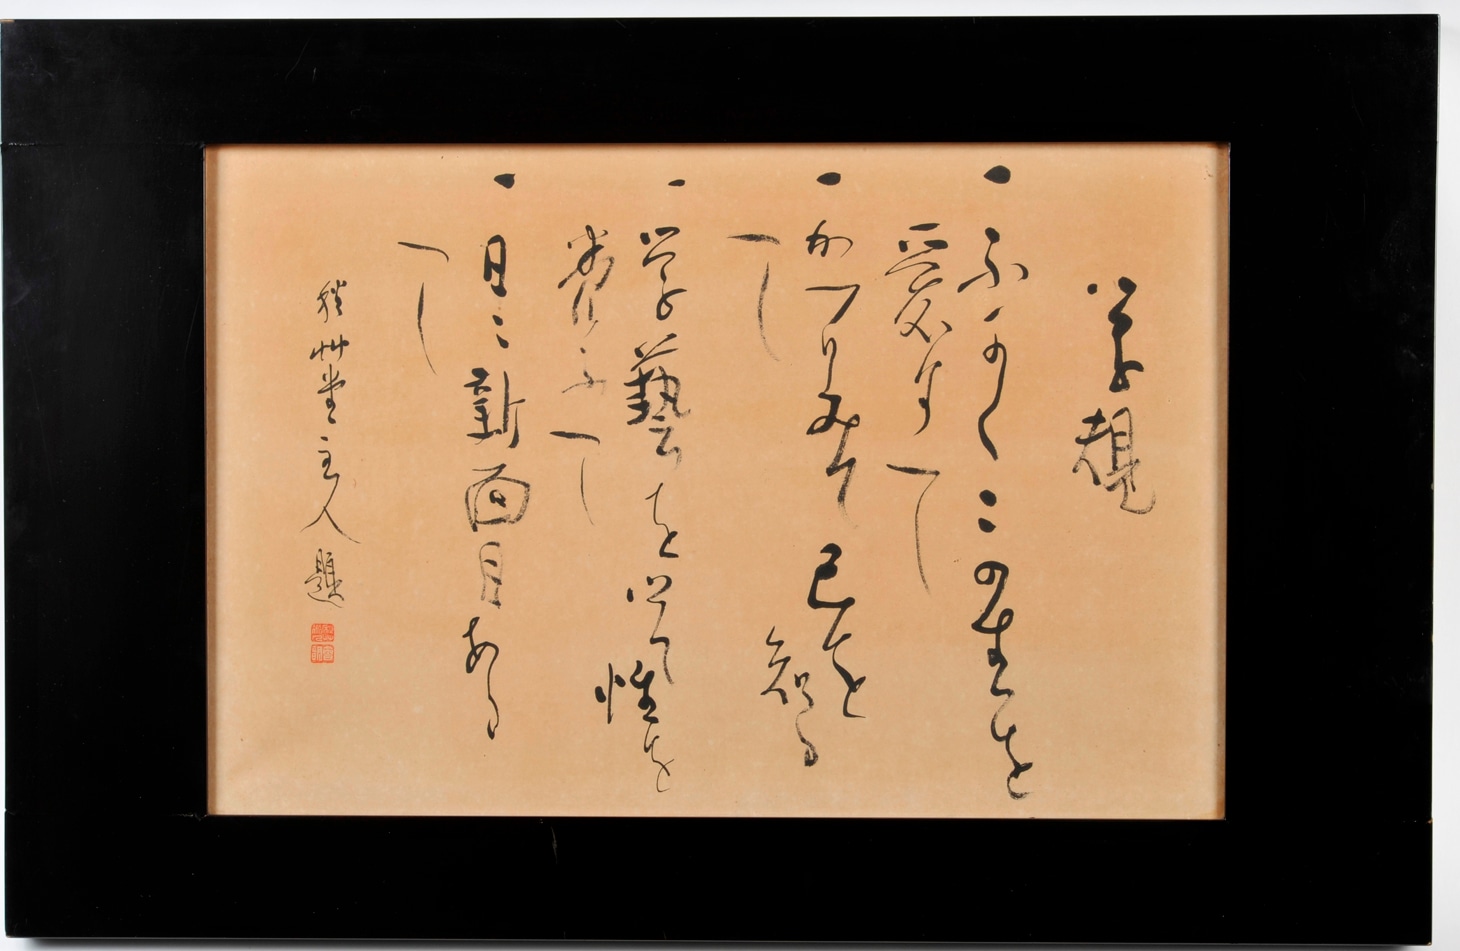 学規
一 ふかくこの生を
愛すべし
一 かへりみて己を
知るべし
一 学藝を以て性を
養ふべし
一 日々新面目ある
べし
秋艸堂主人題